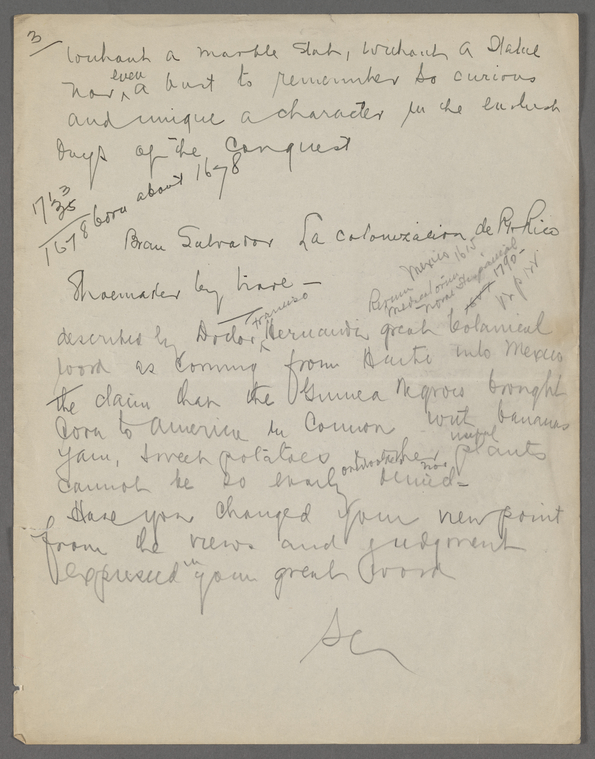 3
without a marble slab, without a statue
nor even a bust to remember so curious
and unique a character in the
days of the Conquest
1735
1678 born about 1678
Brau Salvador La colonizacion de Pto Rico
Shoemaker by trade —
Rerum
Mexico 1615
1790
described by Doctor Francisco Hernandez great botanical
word as coming from Haiti into Mexico
the claim that the Guinea Negroes brought
Corn to America in Common with bananas
yam, sweet potatoes & other useful plants
cannot be so easily denied —
Have you changed your view point
from the views and judgment
expressed in your great word